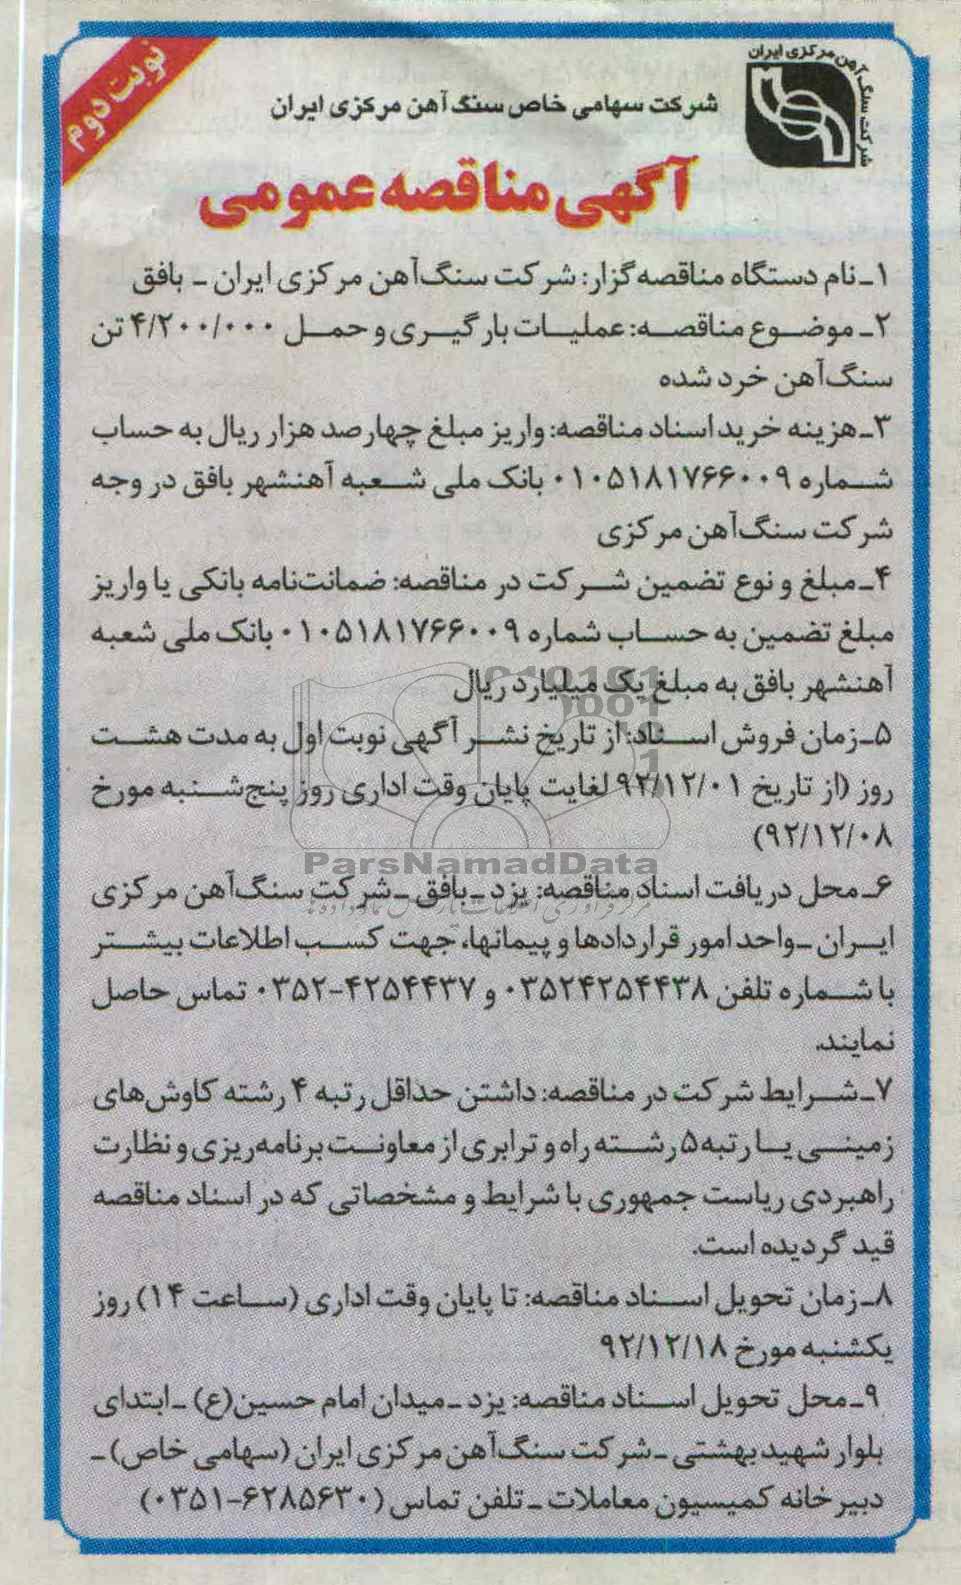 نوبت دوم
شرکت سنگ آهن مرکزی ایران
شرکت سهامی خاص سنگ آهن مرکزی ایران
آگهی مناقصه عمومی
۱ـ نام دستگاه مناقصه گزار: شرکت سنگ‌آهن مرکزی ایران ـ بافق
۲ـ موضوع مناقصه: عملیات بارگیری و حمل ۴/۲۰۰/۰۰۰ تن
سنگ‌آهن خرد شده
۳ـ هزینه خرید اسناد مناقصه: واریز مبلغ چهارصد هزار ریال به حساب
شماره ۰۱۰۵۱۸۱۷۶۶۰۰۹ بانک ملی شعبه آهنشهر بافق در وجه
شرکت سنگ‌آهن مرکزی
۴ـ مبلغ و نوع تضمین شرکت در مناقصه: ضمانت‌نامه بانکی یا واریز
مبلغ تضمین به حساب شماره ۰۱۰۵۱۸۱۷۶۶۰۰۹ بانک ملی شعبه
آهنشهر بافق به مبلغ یک میلیارد ریال
۵ـ زمان فروش اسناد: از تاریخ نشر آگهی نوبت اول به مدت هشت
روز (از تاریخ ۹۲/۱۲/۰۱ لغایت پایان وقت اداری روز پنج‌شنبه مورخ
۹۲/۱۲/۰۸)
ParsNamadData
۶ـ محل دریافت اسناد مناقصه: یزد ـ بافق ـ شرکت سنگ‌آهن مرکزی
ایران ـ واحد امور قراردادها و پیمانها، جهت کسب اطلاعات بیشتر
با شماره تلفن ۰۳۵۲۴۲۵۴۴۳۸ و ۴۲۵۴۴۳۷-۰۳۵۲ تماس حاصل
نمایند.
۷ـ شرایط شرکت در مناقصه: داشتن حداقل رتبه ۴ رشته کاوش‌های
زمینی یا رتبه ۵ رشته راه و ترابری از معاونت برنامه‌ریزی و نظارت
راهبردی ریاست جمهوری با شرایط و مشخصاتی که در اسناد مناقصه
قید گردیده است.
۸ـ زمان تحویل اسناد مناقصه: تا پایان وقت اداری (ساعت ۱۴) روز
یکشنبه مورخ ۹۲/۱۲/۱۸
۹ـ محل تحویل اسناد مناقصه: یزد ـ میدان امام حسین(ع) ـ ابتدای
بلوار شهید بهشتی ـ شرکت سنگ‌آهن مرکزی ایران (سهامی خاص) ـ
دبیرخانه کمیسیون معاملات ـ تلفن تماس (۶۲۸۵۶۳۰-۰۳۵۱)